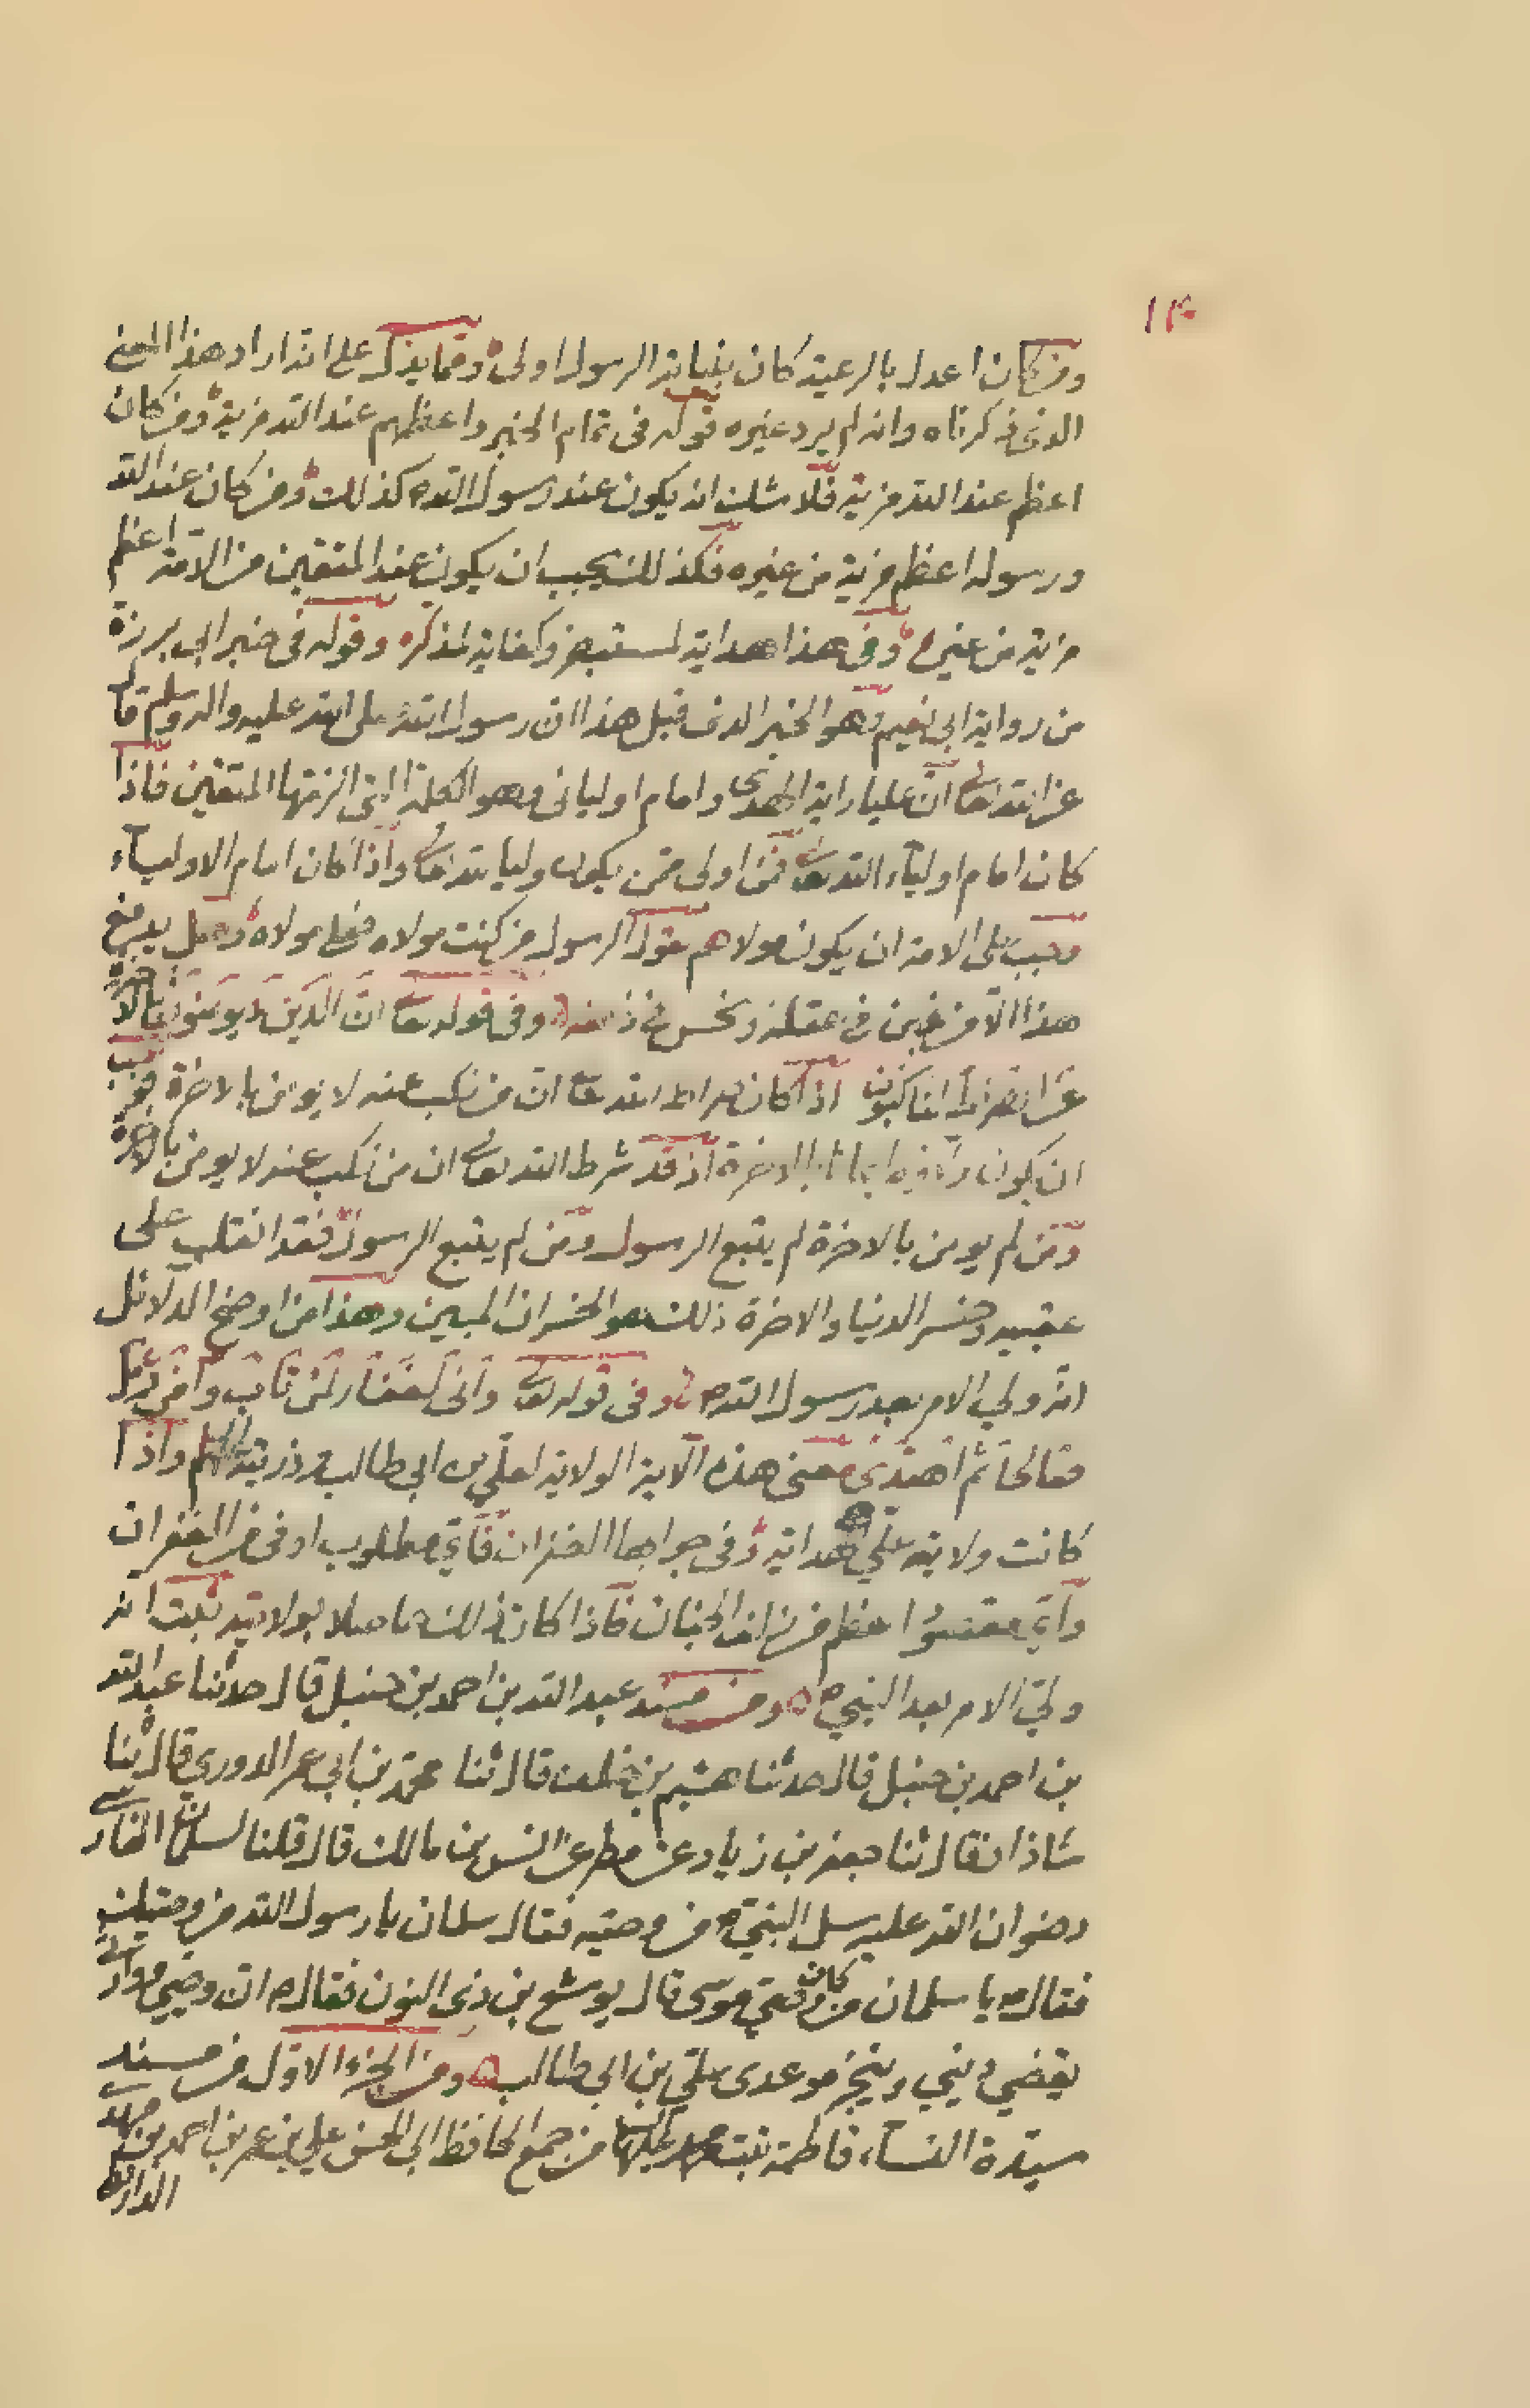 ١٣
ومن كان اعدل بالرعية كان بنيابة الرسول اولى ومما يذكر على انه اراد هذا المعنى
الذى ذكرناه وانه لم يرد غيره قوله فى تمام الخبر واعظمهم عند الله مزية ومن كان
اعظم عند الله مزية فلا شك انه يكون عند رسول الله ص كذلك ومن كان عند الله
ورسوله اعظم مزية من غيره فكذلك يجب ان يكون عند المتقين من الامة اعظم
مزية من غيره وفى هذا هداية لمستبصر وكفاية لمذكره وقوله فى خبر ابى برزة
من رواية ابى نعيم وهو الخبر الذى قبل هذا ان رسول الله صلى الله عليه واله وسلم قال
عن الله تعالى ان عليا راية الهدى وامام اوليائى وهو الكلمة التى الزمتها المتقين فاذا
كان امام اولياء الله تعالى فمن اولى ممن يكون وليا لله تعالى واذا كان امام الاولياء
وجب على الامة ان يكون مولاهم بقول الرسول من كنت مولاه فعلى مولاه وهل يدفع
هذا الا من غبن فى عقله وبخس فى ذهنه وفى قوله تعالى ان الذين لا يومنون بالاخرة
عن الصراط لناكبون اذا كان صراط الله تعالى ان من نكب عنه لا يومن بالاخرة فوجب
ان يكون ايمانا بالاخرة اذ قد شرط الله تعالى ان من نكب عنه لا يومن بالاخرة
ومن لم يومن بالاخرة لم يتبع الرسول ومن لم يتبع الرسول فقد انقلب على
عقبيه وخسر الدنيا والاخرة ذلك هو الخسران المبين وهذا من اوضح الدلائل
انه ولي الامر بعد رسول الله ص وفى قوله تعالى وانى لغفار لمن تاب وامن وعمل
صالحا ثم اهتدى معنى هذه الآية الولاية لعلي بن ابى طالب وذريته واذا
كانت ولاية علي هداية وفى جوابها الغفران فاي مطلوب اوفى من الغفران
واي مقصود اعظم من الجنان فاذا كان ذلك حاصلا بولايته ثبت انه
ولي الامر بعد النبي ص ومن مسند عبد الله بن احمد بن حنبل قال حدثنا عبد الله
بن احمد بن حنبل قال حدثنا هشيم بن خلف قال ثنا محمد بن ابى عمر الدورى قال ثنا
شاذان قال ثنا جعفر بن زياد عن مطر عن انس بن مالك قال قلنا لسلمان الفارسى
رضوان الله عليه سل النبي ص من وصيه فقال سلمان يا رسول الله من وصيك
فقال ص يا سلمان من كان وصي موسى قال يوشع بن ذى النون فقال ص ان وصيي ووارثى
يقضي ديني وينجز موعدى علي بن ابى طالب ومن الجزء الاول من مسند
سيدة النساء فاطمة بنت محمد من جمع الحافظ ابى الحسن علي بن عمر بن احمد بن مهدى
الدارقطنى